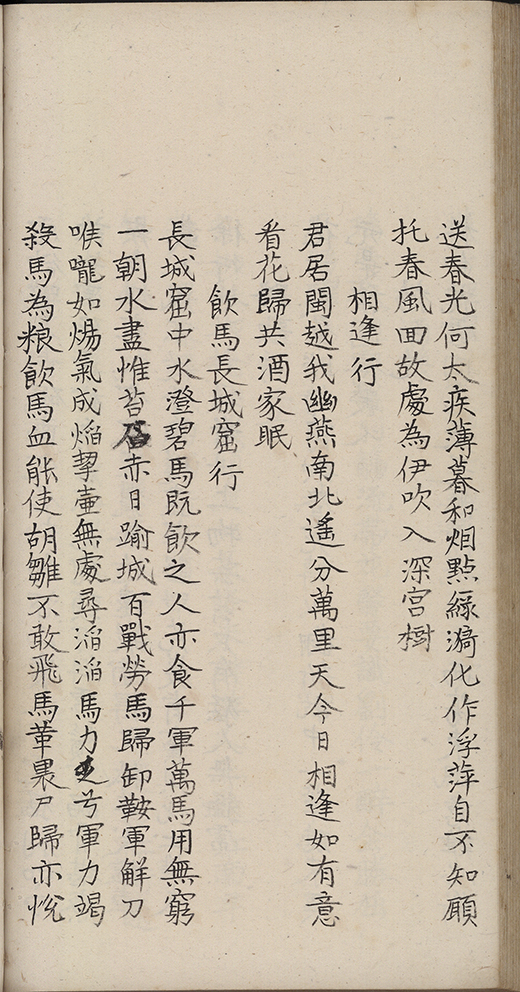 送春光何太疾薄暮和烟點綠漪化作浮萍自不知願
托春風回故處為伊吹入深宮樹
相逢行
君居閩越我幽燕南北遙分萬里天今日相逢如有意
看花歸共酒家眠
飲馬長城窟行
長城窟中水澄碧馬既飲之人亦食千軍萬馬用無窮
一朝水盡惟苔石赤日踰城百戰勞馬歸卸鞍軍解刀
喉嚨如煬氣成焰挈壷無處尋滔滔馬力兮軍力竭
殺馬為粮飲馬血能使胡雛不敢飛馬革裹尸歸亦悅